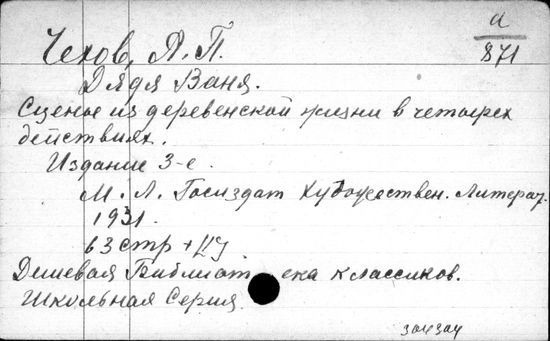 а
871
Чехов, А. П.
Дядя Ваня.
Сцены из деревенской жизни в четырех
действиях.
Издание 3-е.
М. Л. Госиздат Художествен. Литерат.
1931.
63 стр +
Дешевая Библиотека классиков.
Школьная Серия.